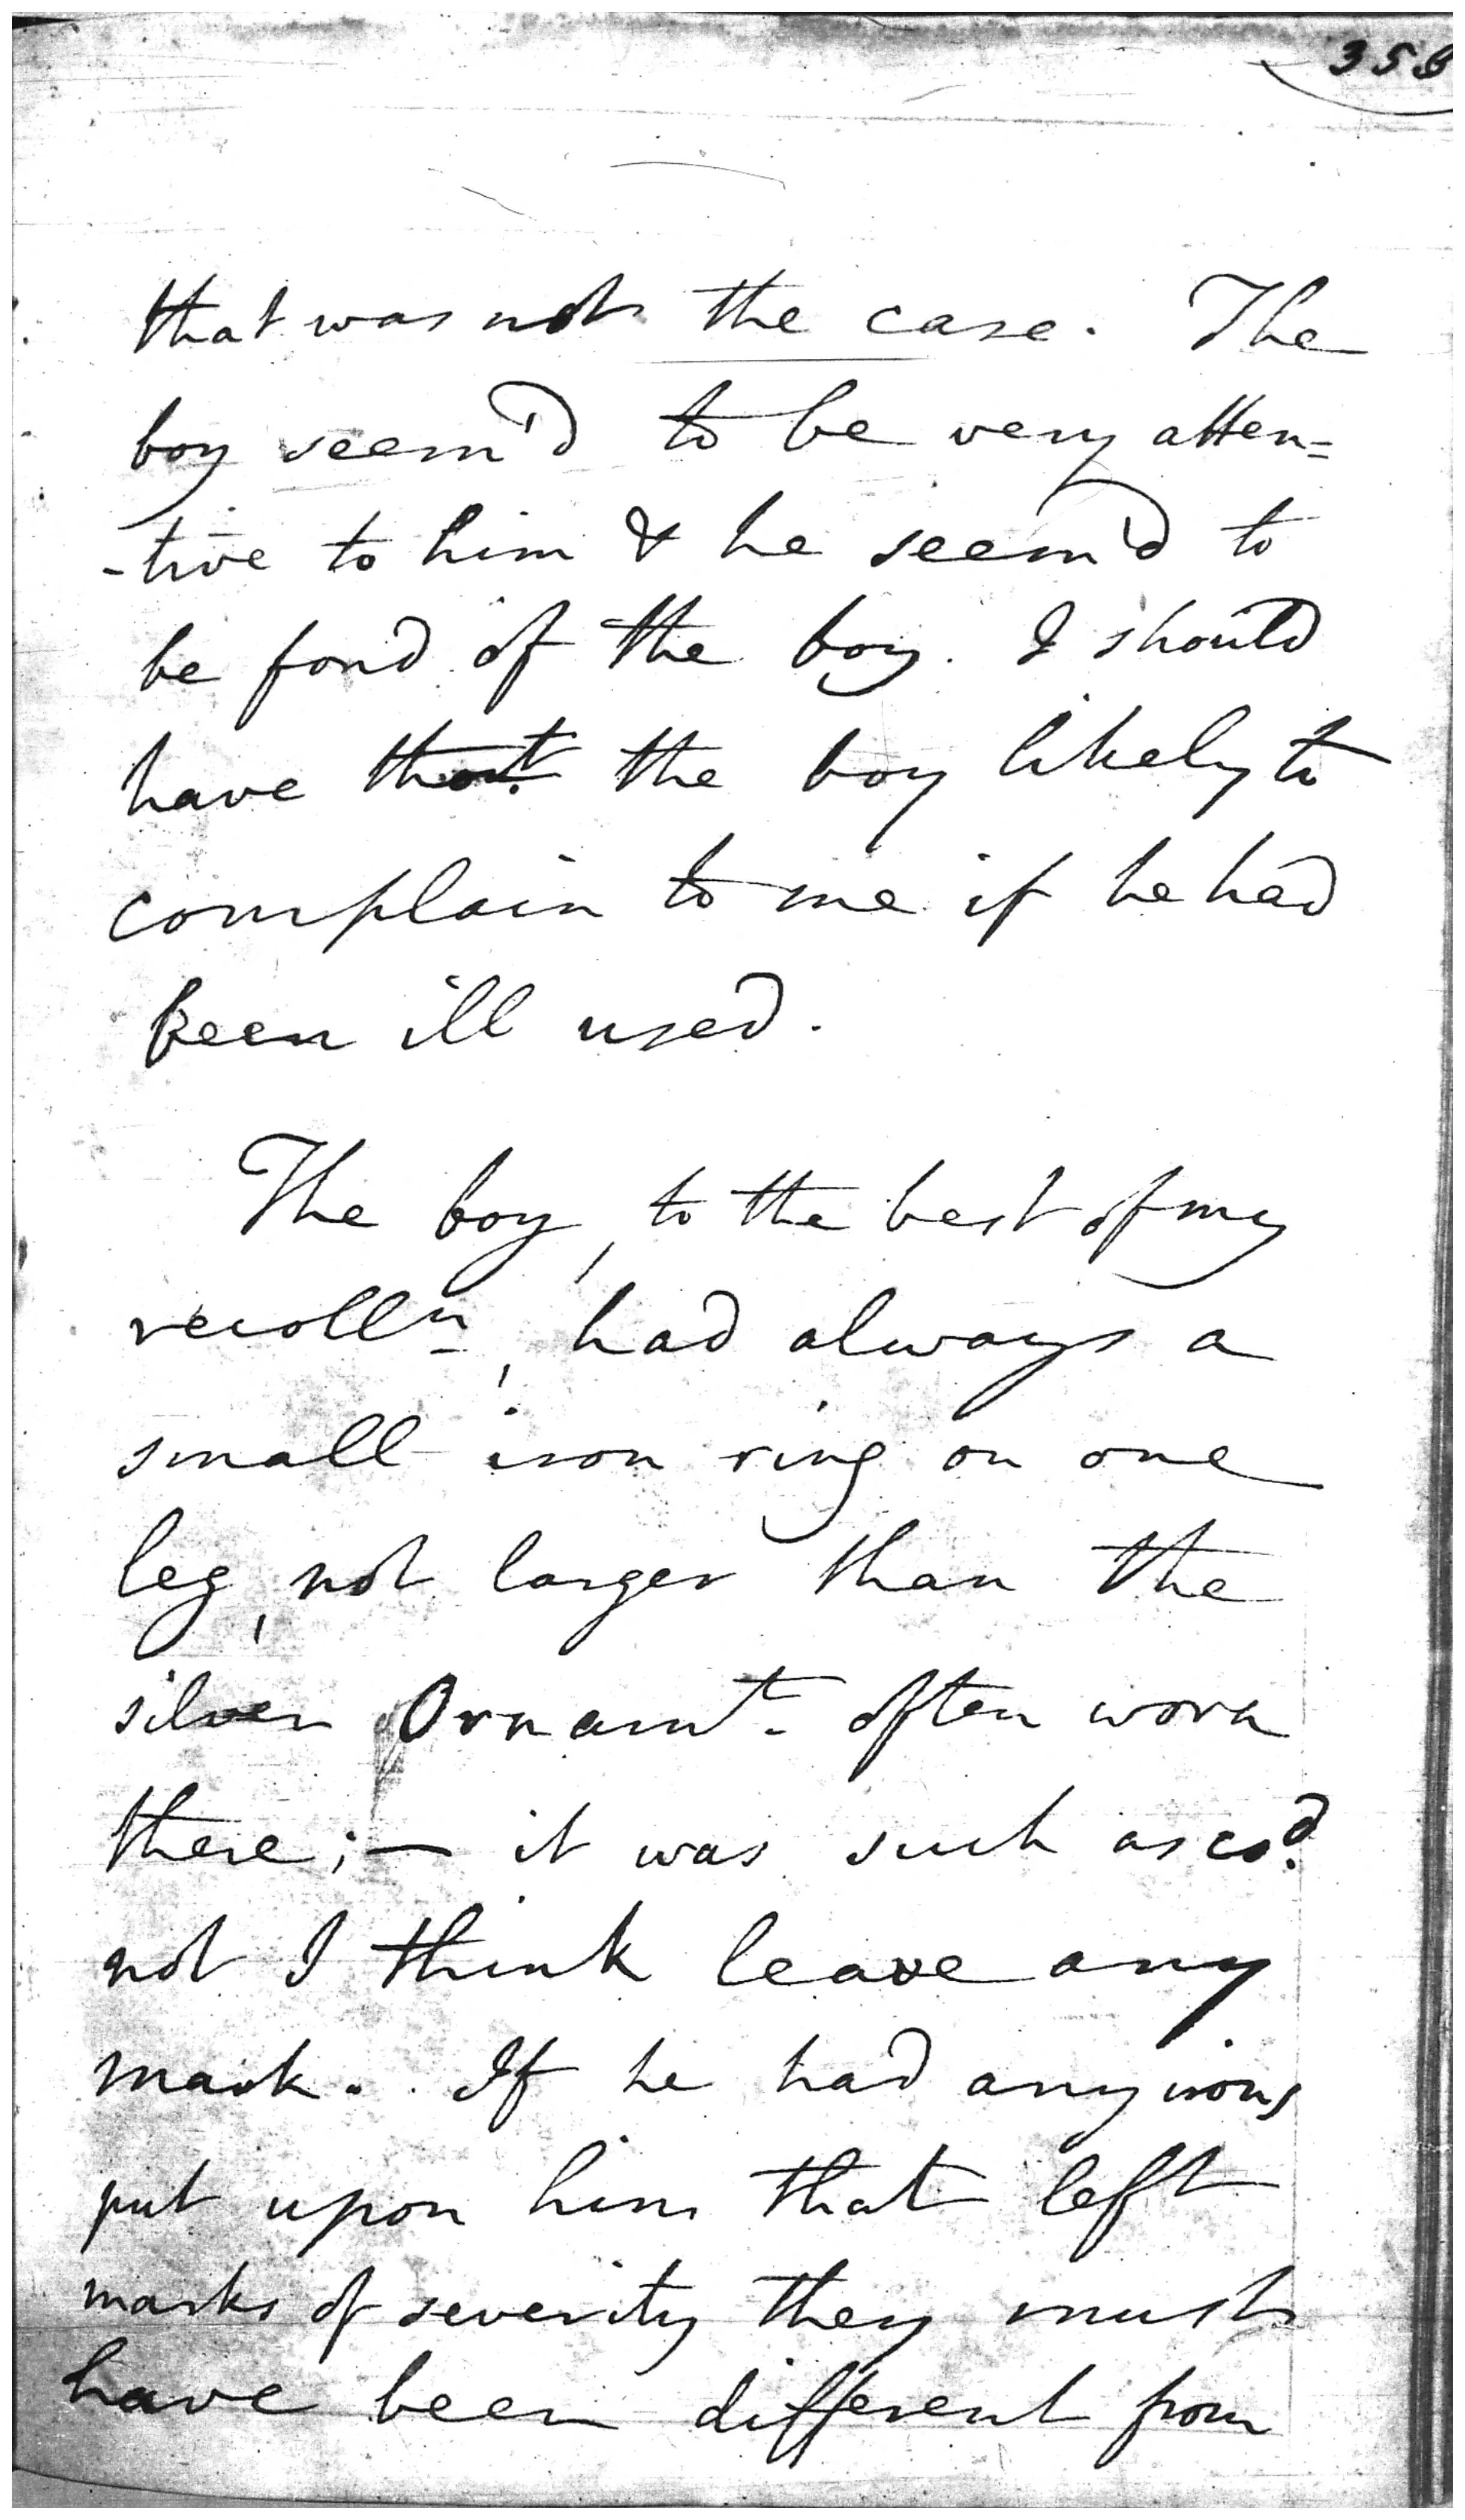 358
that was not the case. The
boy seem'd to be very atten=
-tive to him & he seem'd to
be fond of the boy. I should
have thot. the boy likely to
complain to me if he had
been ill used.
The boy, to the best of my
recolln, had always a
small iron ring on one
leg, not larger than the
silver Ornamt. often worn
there; — it was such as cod.
not I think leave any
mark. If he had any irons
put upon him that left
marks of severity they must
have been different from